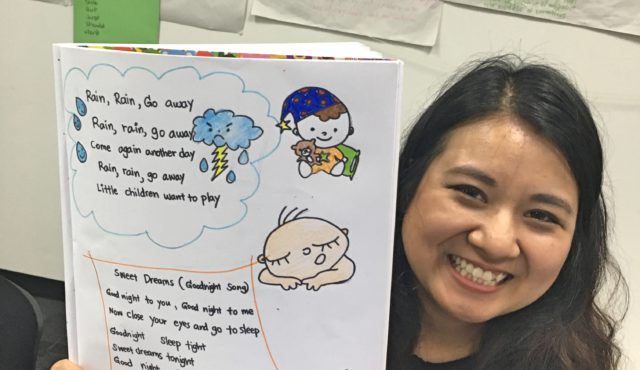 Rain, Rain, Go away
Rain, rain, go away
Come again another day
Rain, rain, go away
Little children want to play
Sweet Dreams (Goodnight Song)
Good night to you, Good night to me
Now close your eyes and go to sleep
Goodnight Sleep tight
Sweet dreams tonight
Good night